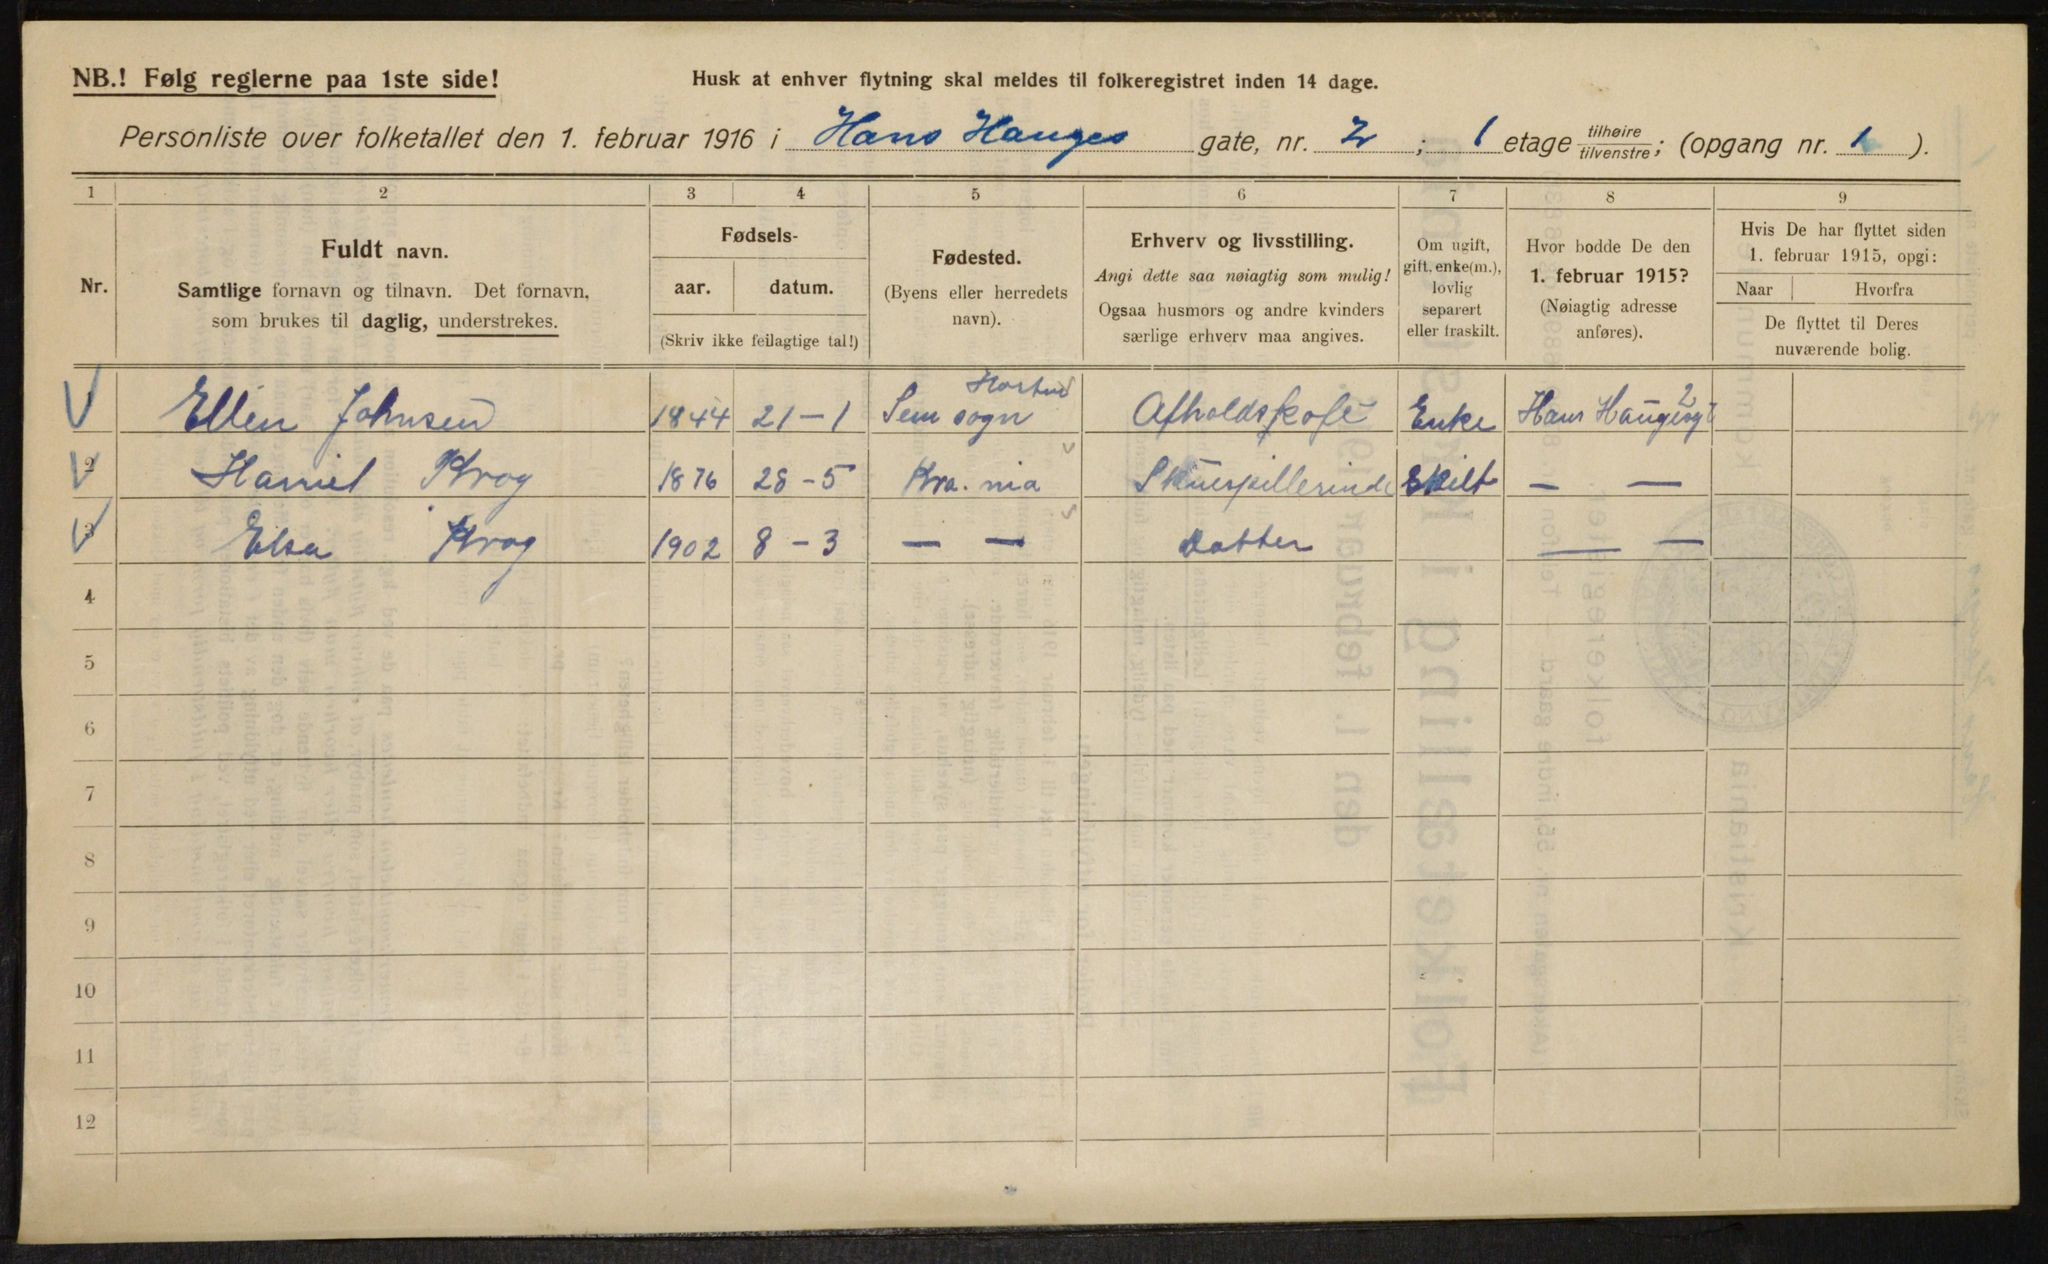 NB.! Følg reglerne paa 1ste side!
Husk at enhver flytning skal meldes til folkeregistret inden 14 dage.
Personliste over folketallet den 1. februar 1916 i Hans Hauges gate, nr. 2; 1 etage tilhøire/tilvenstre; (opgang nr. 1).
1 2 3 4 5 6 7 8 9
Nr.
Fuldt navn.
Samtlige fornavn og tilnavn. Det fornavn,
som brukes til daglig, understrekes.
Fødsels-
aar. datum.
(Skriv ikke feilagtige tal!)
Fødested.
(Byens eller herredets
navn).
Erhverv og livsstilling.
Angi dette saa nøiagtig som mulig!
Ogsaa husmors og andre kvinders
særlige erhverv maa angives.
Om ugift,
gift, enke(m.),
lovlig
separert
eller fraskilt.
Hvor bodde De den
1. februar 1915?
(Nøiagtig adresse
anføres).
Hvis De har flyttet siden
1. februar 1915, opgi:
Naar Hvorfra
De flyttet til Deres
nuværende bolig.
1 Ellen Johnsen 1844 21-1 Sem sogn Afholdskafe Enke Hans Haugesgt 2
2 Harriet Krog 1876 28-5 Kra. nia Skuespillerinde Skilt — —
3 Elsa Krog 1902 8-3 — — Datter — —
4
5
6
7
8
9
10
11
12